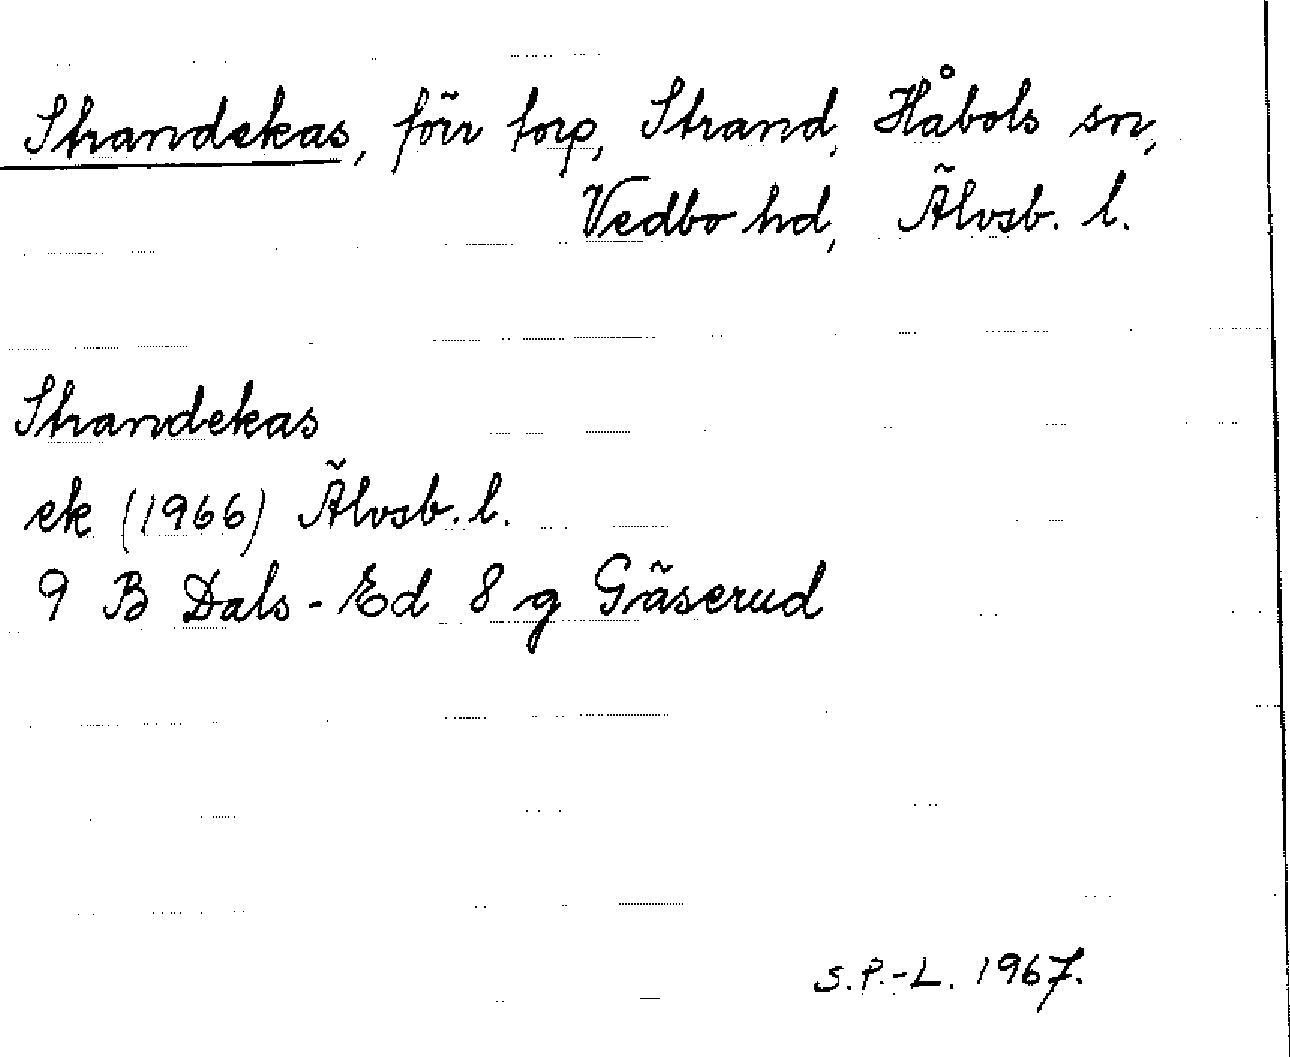 Strandekas, förr torp, Strand, Håbols sn,
Vedbo hd, Älvsb. l.
Strandekas
ek (1966) Älvsb. l.
9 B Dals-Ed 8 g Gäserud
S.P.-L. 1967.